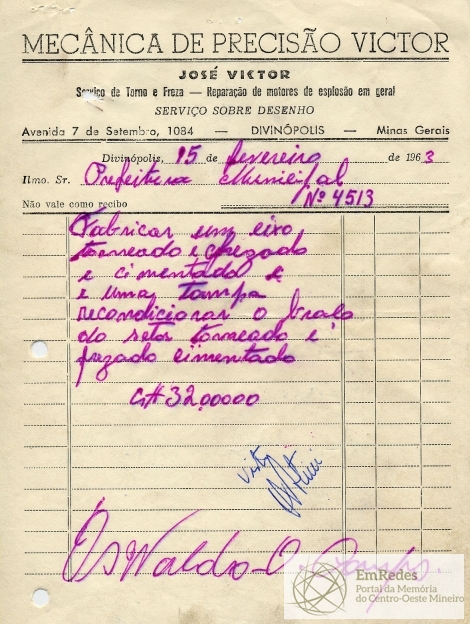 MECÂNICA DE PRECISÃO VICTOR
JOSÉ VICTOR
Serviço de Torno e Freza — Reparação de motores de explosão em geral
SERVIÇO SOBRE DESENHO
Avenida 7 de Setembro, 1084 — DIVINÓPOLIS — Minas Gerais
Divinópolis, 15 de fevereiro de 1963
Ilmo. Sr. Prefeitura Municipal
Não vale como recibo Nº 4513
Fabricar um eixo
torneado e frezado
e cimentado e
e uma tampa
recondicionar o braço
do setor torneado e
frezado cimentado
Cr$ 32,000 00
Visto
Oswaldo O. Campos.
EmRedes
Portal da Memória
do Centro-Oeste Mineiro